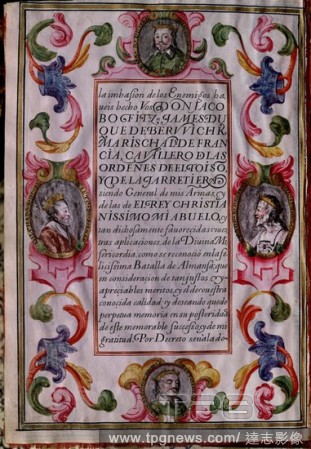 la imbasion de los Enemigos ha
ueis hecho Vos DON IACO
BO FITZ-JAMES DU
QUE DE BERVVICHK
MARISCHAL DE FRAN
CIA, CAVALLERO D LAS
ORDENES DEL TOISO,
Y DE LA JARRETIERA
siendo General de mis Armas, y
de las de EL REY CHRISTIA
NISSIMO MI ABUELO, y
tan dichosamente fauorecidas vues
tras aplicaciones de la Diuina Mi
sericordia, como se reconoció en la fe
licissima Batalla de Almansa; que
en consideracion de tan justos y
apreciables meritos, y de vuestra
conocida calidad, y deseando quede
perpetua memoria en su posteridad
de este memorable suscesso, y de mi
gratitud. Por Decreto señalado
TPG
www.tpgnews.com/達志影像